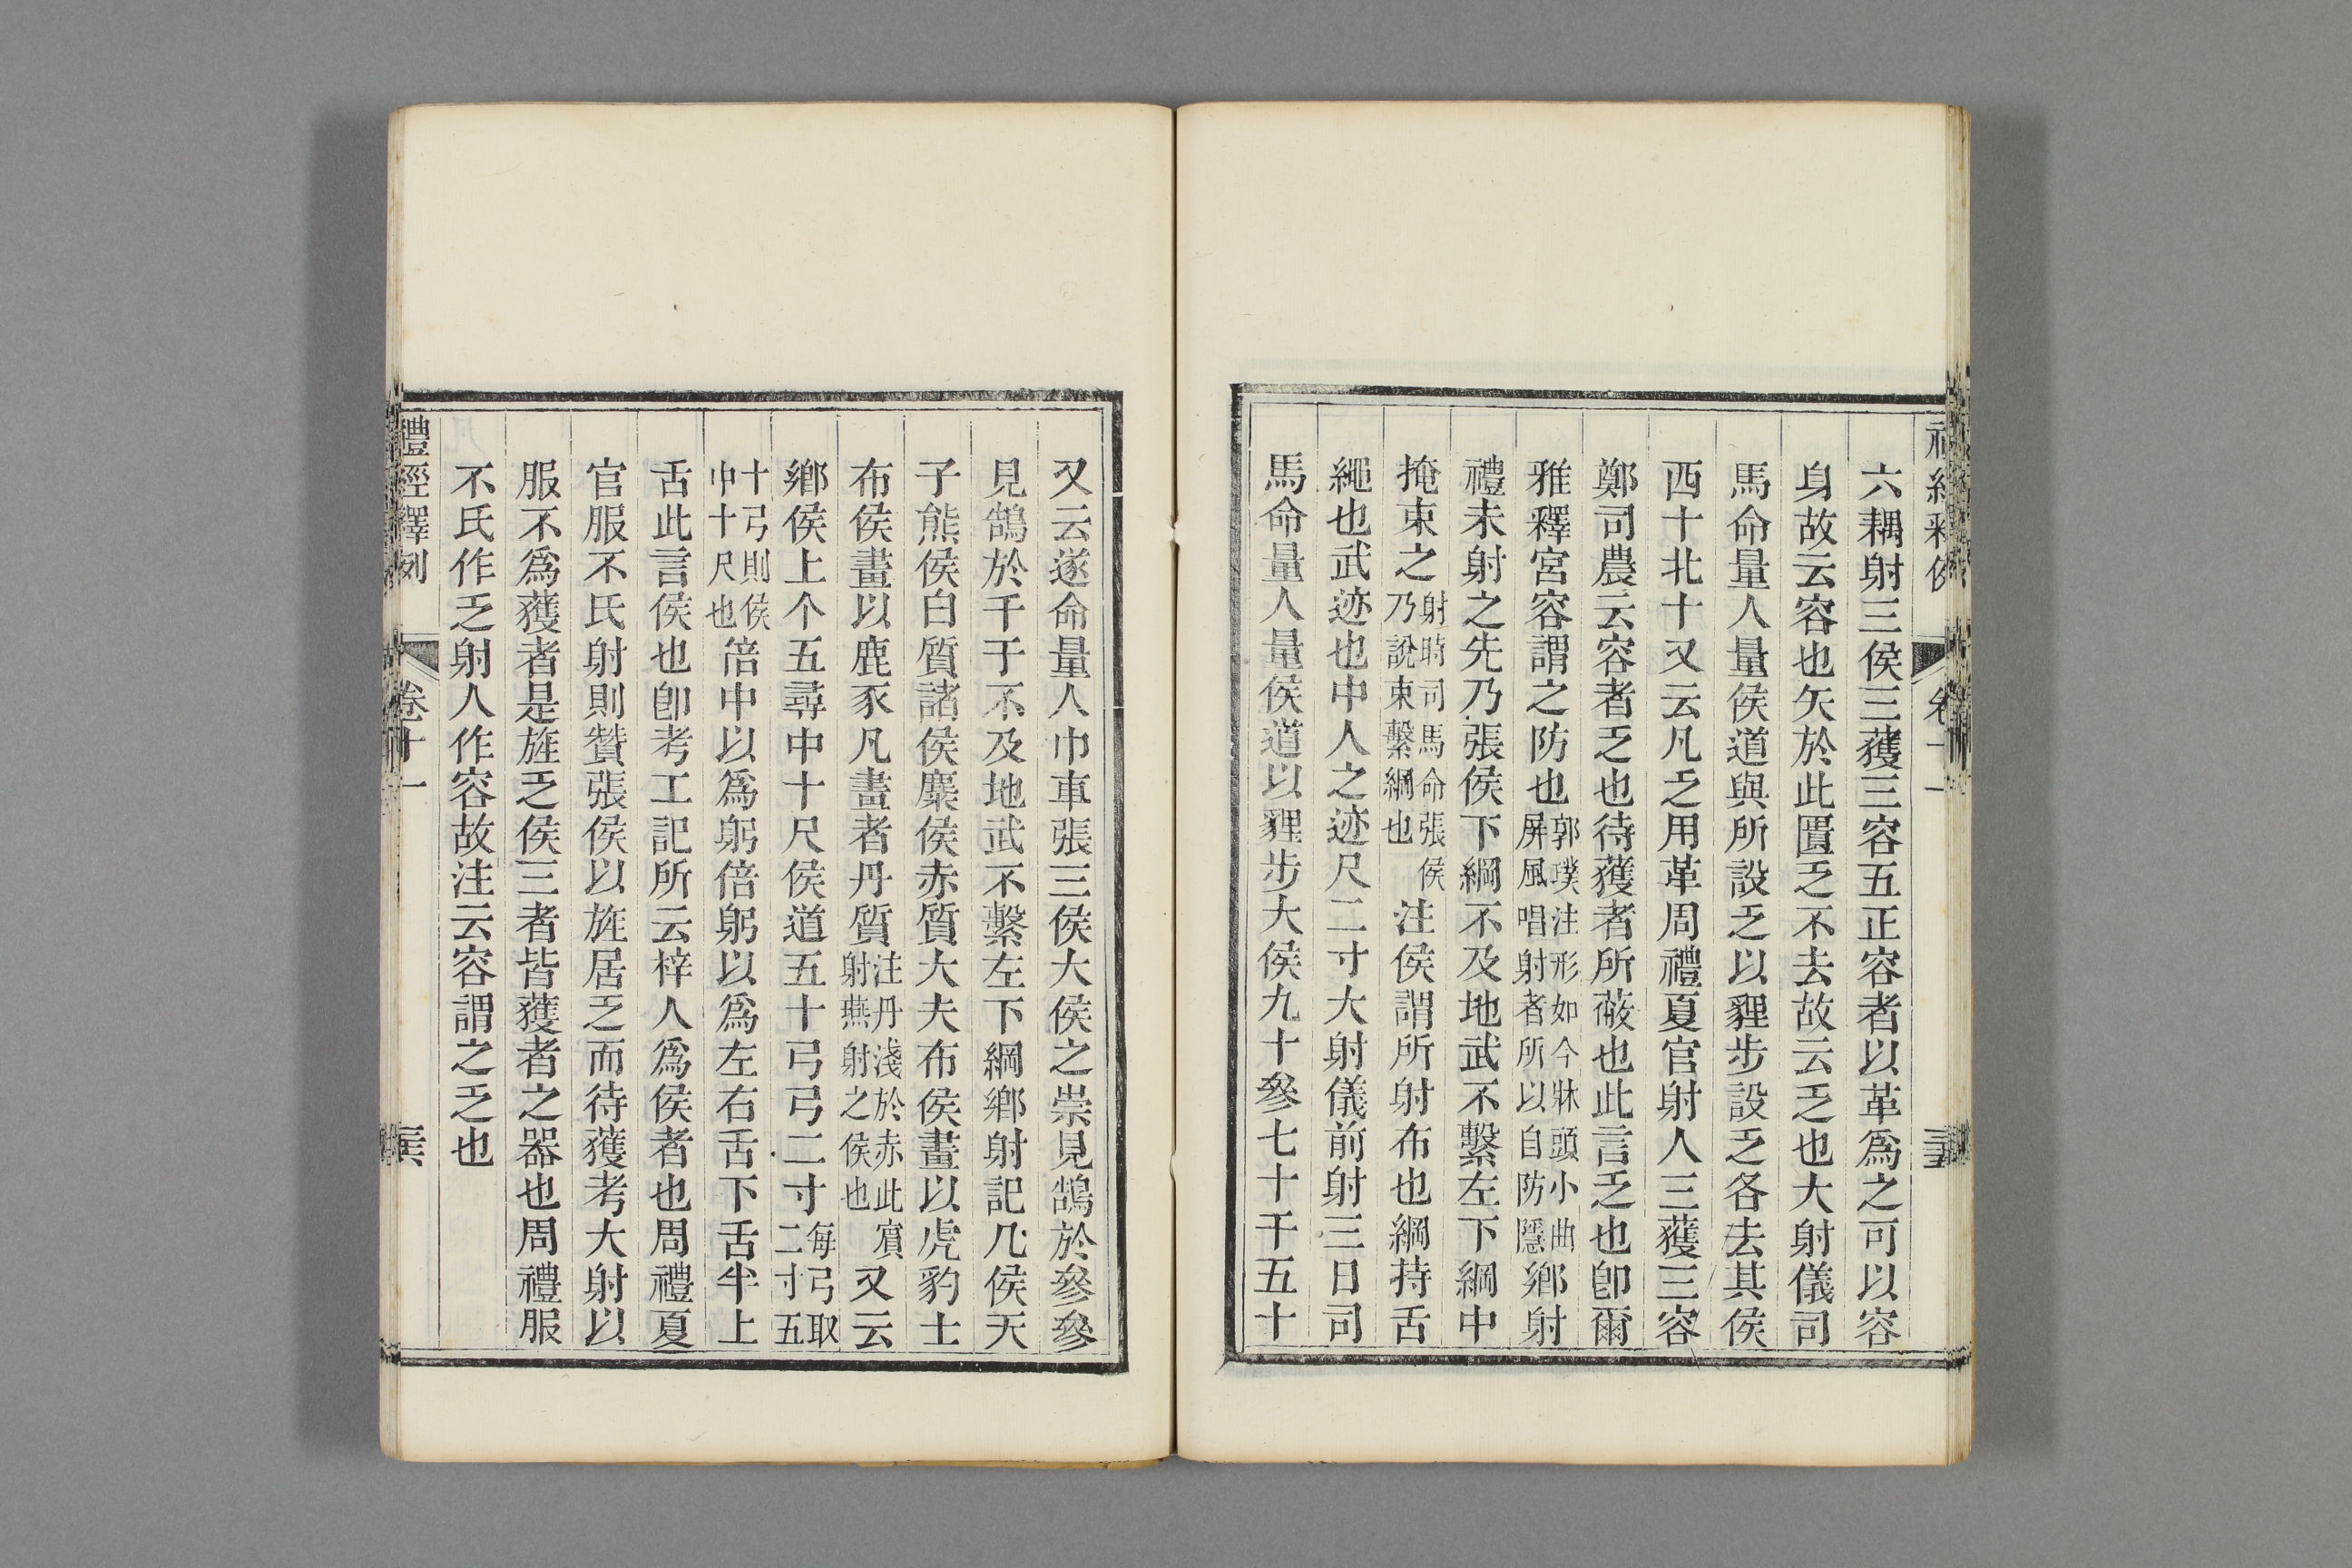 六耦射三侯三獲三容五正容者以革爲之可以容
身故云容也矢於此匱乏不去故云乏也大射儀司
馬命量人量侯道與所設乏以貍步設乏各去其侯
西十北十又云凡乏用革周禮夏官射人三獲三容
鄭司農云容者乏也待獲者所蔽也此言乏也卽爾
雅釋宮容謂之防也郭璞注形如今牀頭小曲屏風唱射者所以自防隱鄉射
禮未射之先乃張侯下綱不及地武不繫左下綱中
掩束之射時司馬命張侯乃說束繫綱也注侯謂所射布也綱持舌
繩也武迹也中人之迹尺二寸大射儀前射三日司
馬命量人量侯道以貍步大侯九十參七十干五十
又云遂命量人巾車張三侯大侯之崇見鵠於參參
見鵠於干干不及地武不繫左下綱鄉射記凡侯天
子熊侯白質諸侯麋侯赤質大夫布侯畫以虎豹士
布侯畫以鹿豕凡畫者丹質注丹淺於赤此賓射燕射之侯也又云
鄉侯上个五尋中十尺侯道五十弓弓二寸每弓取二寸五
十弓則侯中十尺也倍中以爲躬倍躬以爲左右舌下舌半上
舌此言侯也卽考工記所云梓人爲侯者也周禮夏
官服不氏射則贊張侯以旌居乏而待獲考大射以
服不爲獲者是旌乏侯三者皆獲者之器也周禮服
不氏作乏射人作容故注云容謂之乏也
禮經釋例
卷十一